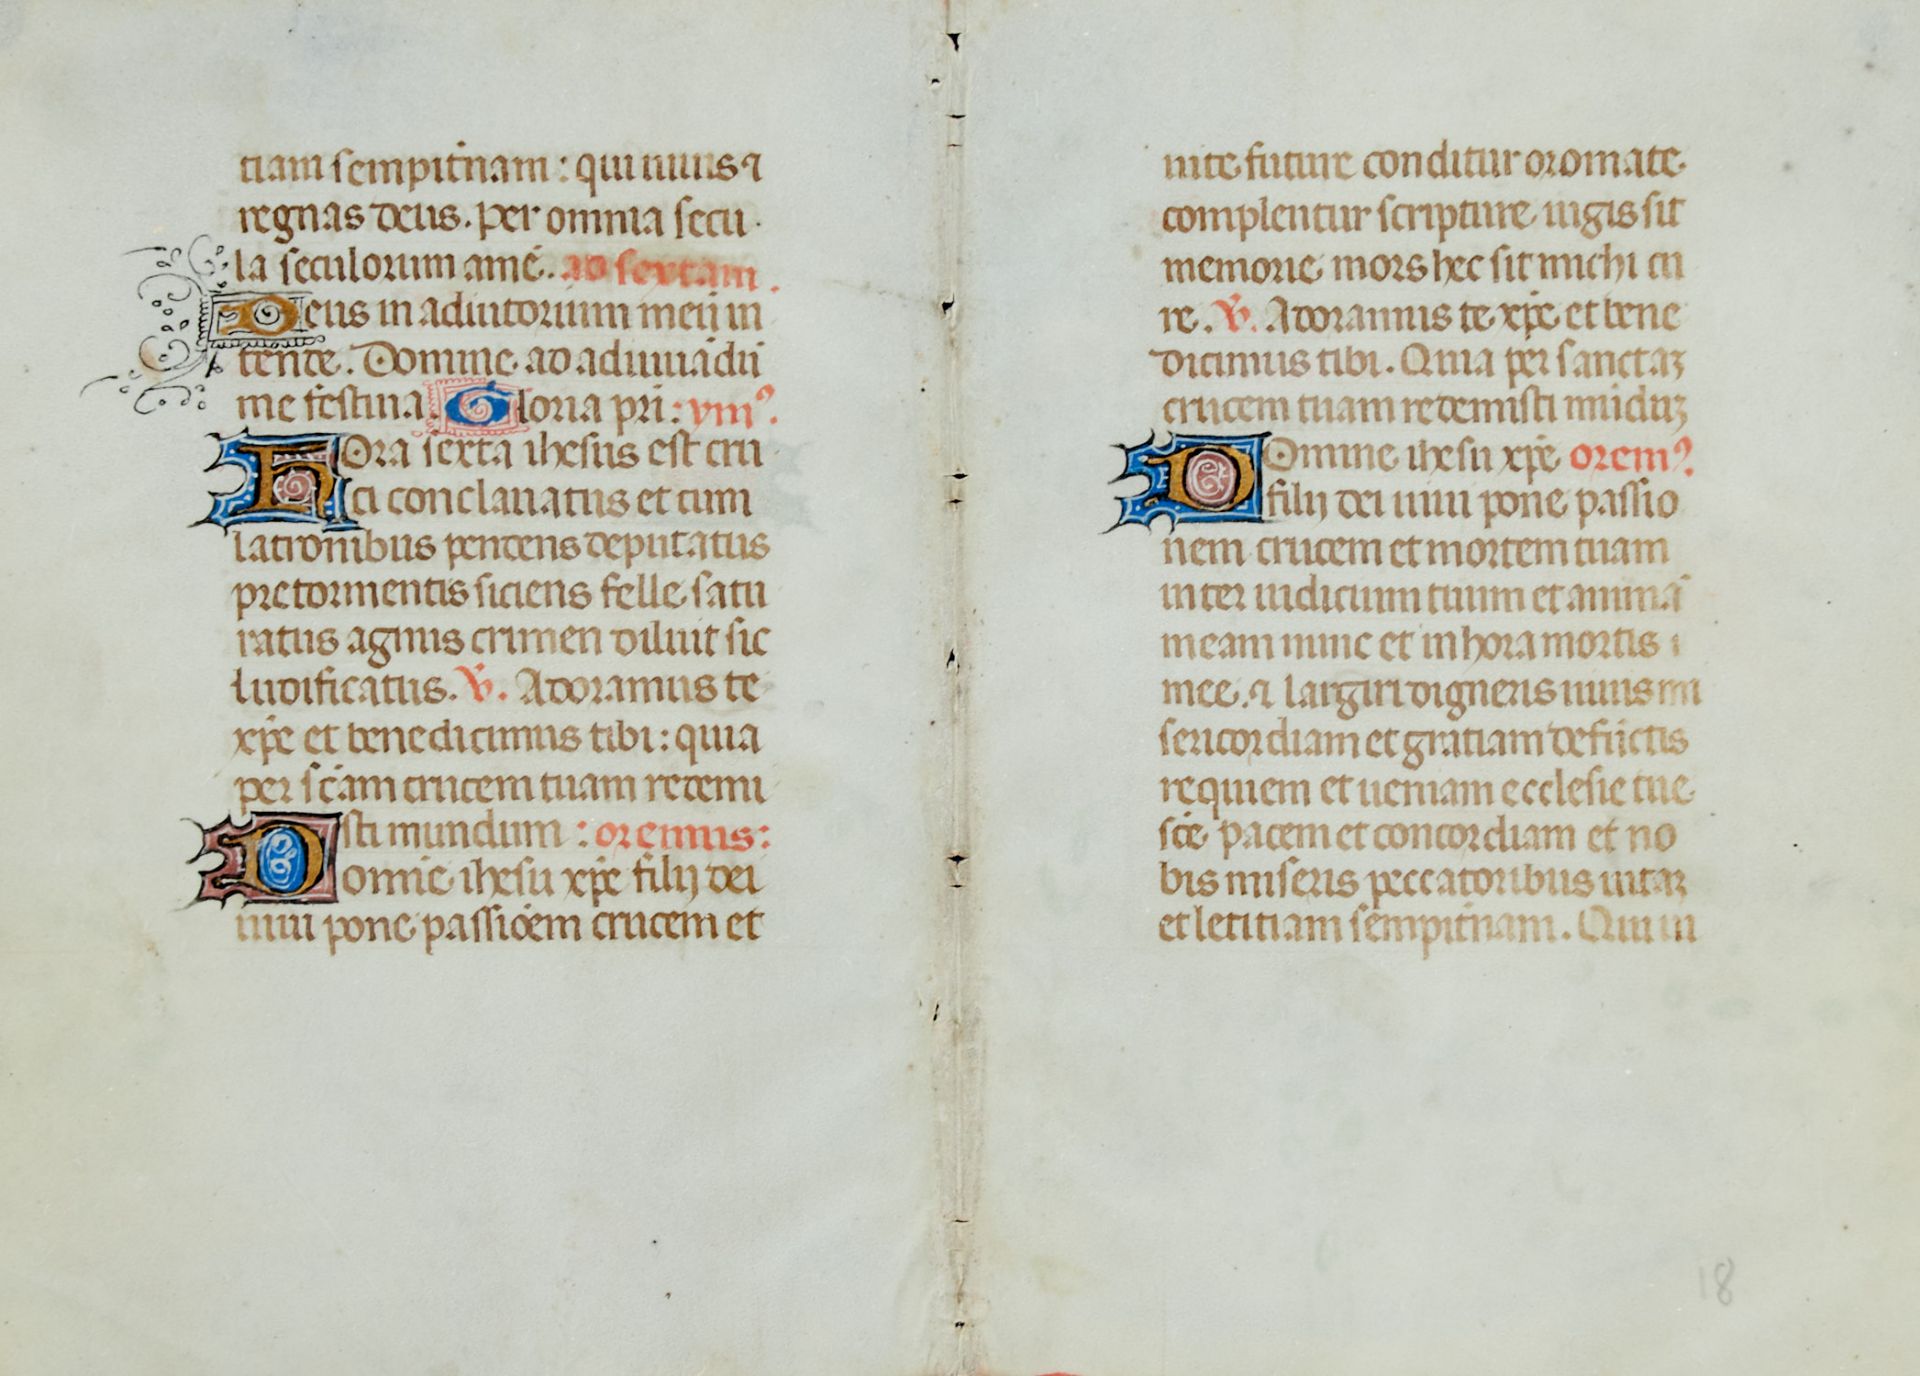 tiam sempit̄nam : qui uiuis ⁊
regnas deus. per omnia secu
la seculorum amē. ad sextam.
Deus in adiutorium meū in
tende. Domine ad adiuuādū
me festina. Gloria pri : ymꝰ.
Hora sexta ihesus est cru
ci conclauatus et cum
latronibus pendens deputatus
pre tormentis siciens felle satu
ratus agnus crimen diluit sic
ludificatus. V. Adoramus te
xp̄e et benedicimus tibi : quia
per scām crucem tuam redemi
sti mundum : oremus :
Domīe ihesu xp̄e filij dei
uiui pone passiōem crucem et
uite future conditur aromate
complentur scripture iugis sit
memorie mors hec sit michi cu
re. V. Adoramus te xp̄e et bene
dicimus tibi. Quia per sanctaꝫ
crucem tuam redemisti mūduꝫ
Domine ihesu xp̄e oremꝰ.
filij dei uiui pone passio
nem crucem et mortem tuam
inter iudicium tuum et animā
meam nunc et in hora mortis
mee. ⁊ largiri digneris uiuis mi
sericordiam et gratiam defūctis
requiem et ueniam ecclesie tue
scē pacem et concordiam et no
bis miseris peccatoribus uitaꝫ
et letitiam sempit̄nam. Qui ui
18